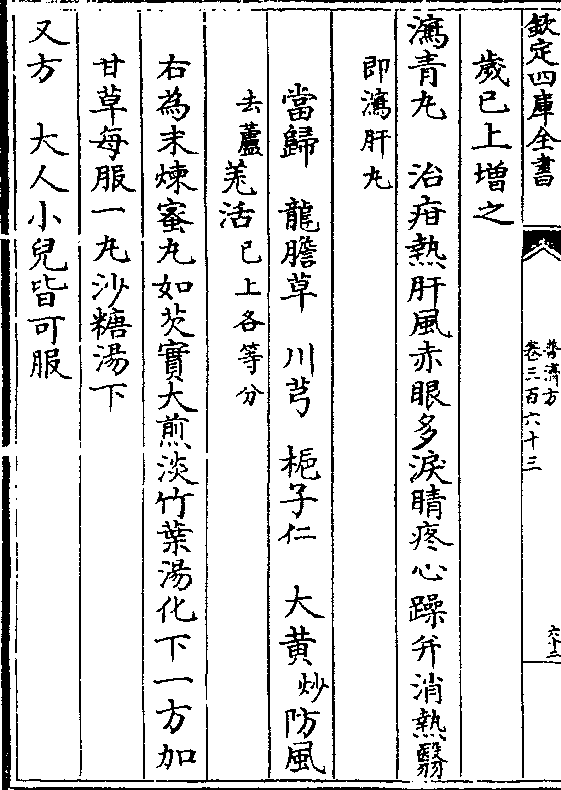 欽定四庫全書
普濟方
卷三百六十三
六十二
歲已上增之
瀉青丸　治疳熱肝風赤眼多淚睛疼心躁并消熱翳
即瀉肝丸
當歸　龍膽草　川芎　梔子仁　大黄炒防風
去蘆羌活已上各等分
右為末煉蜜丸如芡實大煎淡竹葉湯化下一方加
甘草每服一丸沙糖湯下
又方　大人小兒皆可服